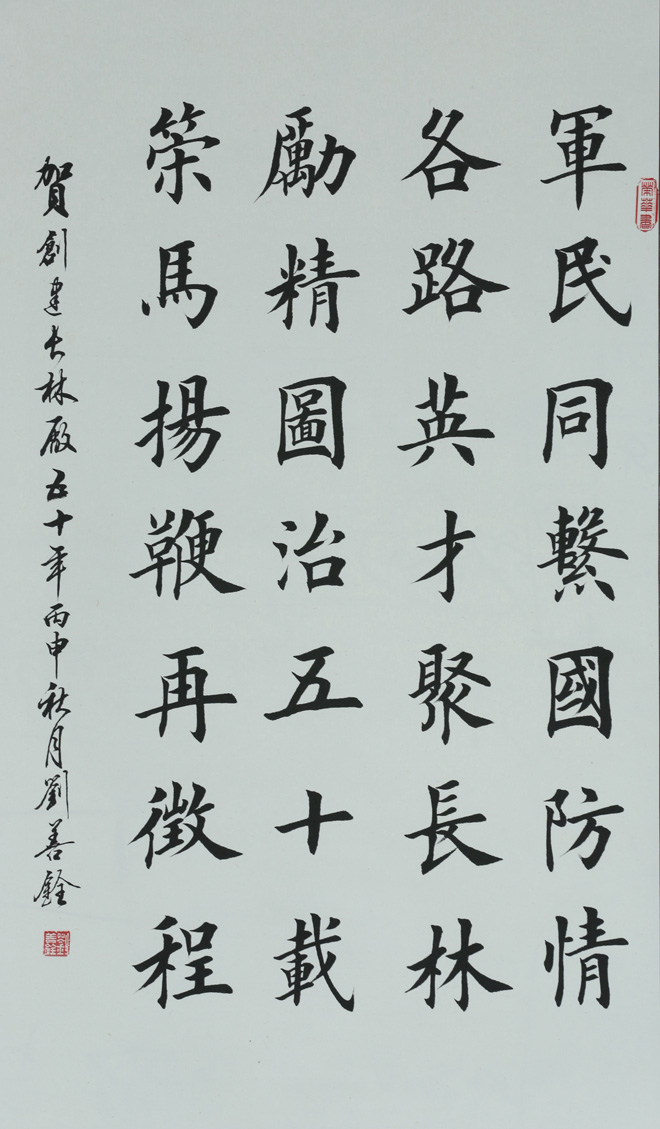 軍民同繫國防情
各路英才聚長林
勵精圖治五十載
策馬揚鞭再徵程
賀創建长林廠五十年丙申秋月劉善銓